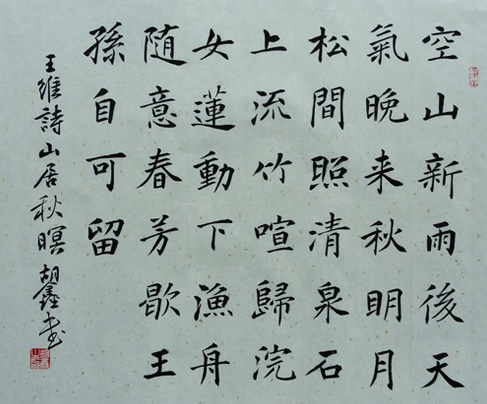 空山新雨後天
氣晚来秋明月
松間照清泉石
上流竹喧歸浣
女蓮動下漁舟
随意春芳歇王
孫自可留
王維詩山居秋暝 胡鑫书